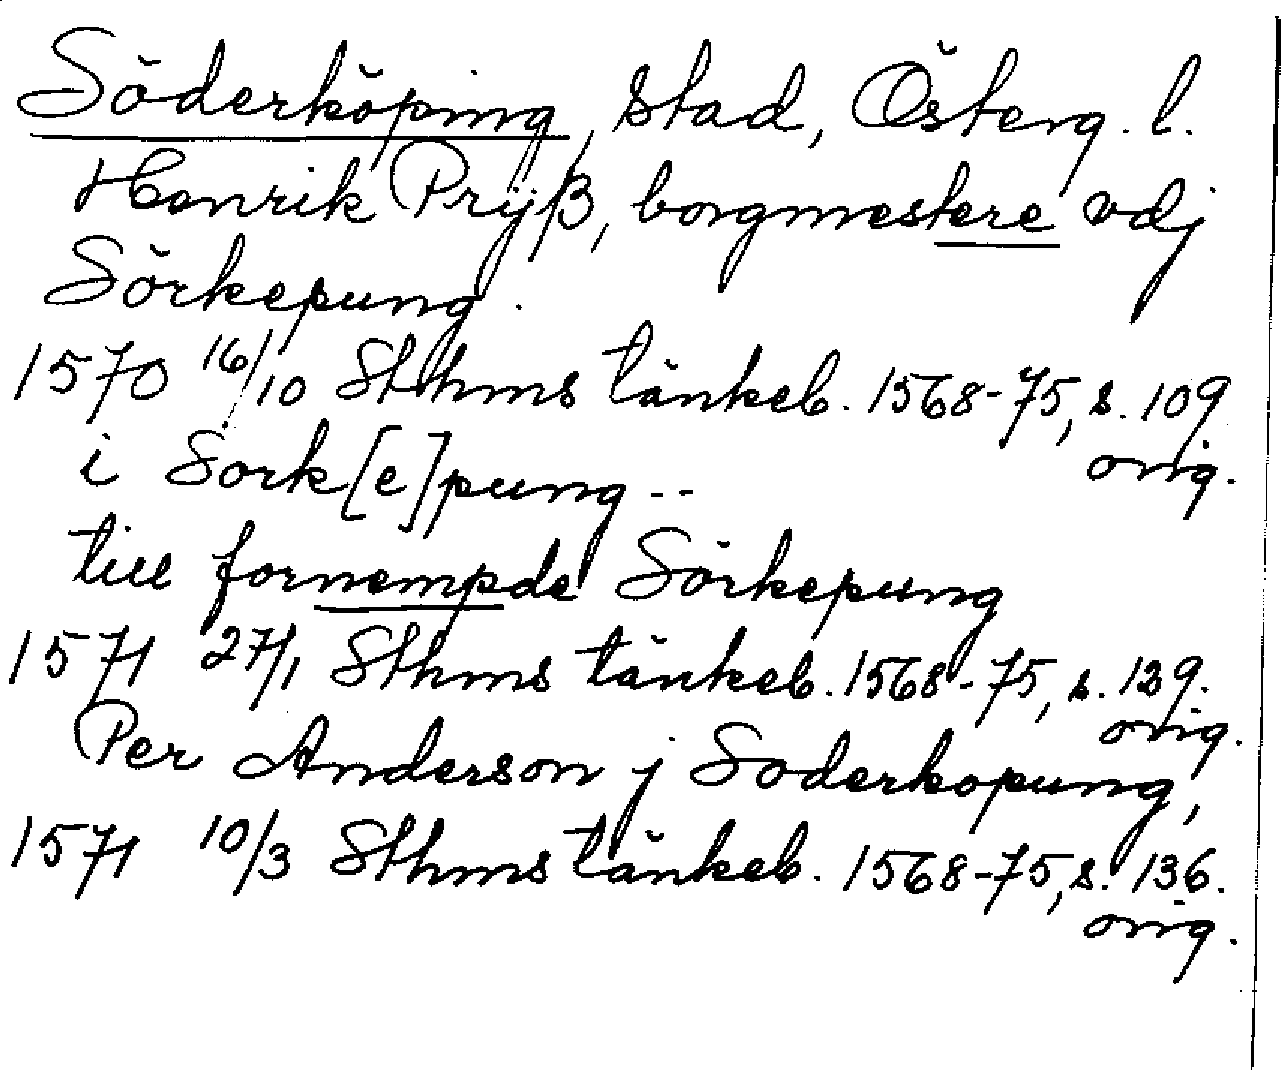 Söderköping, stad, Österg. l.
Henrik Prÿß, borgmestere vdj
Sörkepung.
1570 16/10 Sthms tänkeb. 1568-75, s. 109
orig.
i Sork[e]pung --
till fornempde Sörkepung
1571 27/1 Sthms tänkeb. 1568-75, s. 129.
orig.
Per Anderson j Soderkopung,
1571 10/3 Sthms tänkeb. 1568-75, s. 136.
orig.